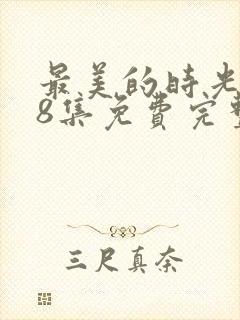 最美的时光
8集免费完整
三尺真奈